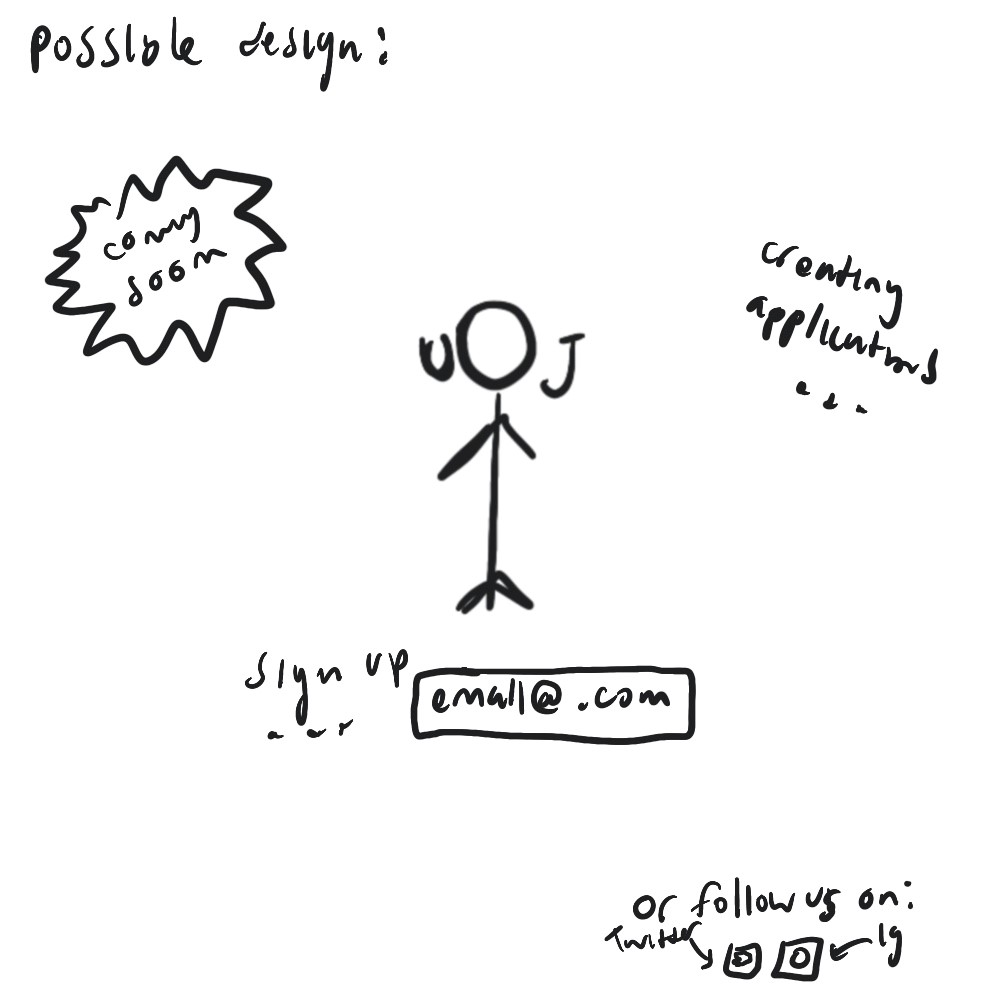 possible design:
coming
soon
creating
applications
...
U J
sign up
...
email@ .com
or follow us on:
Twitter
ig